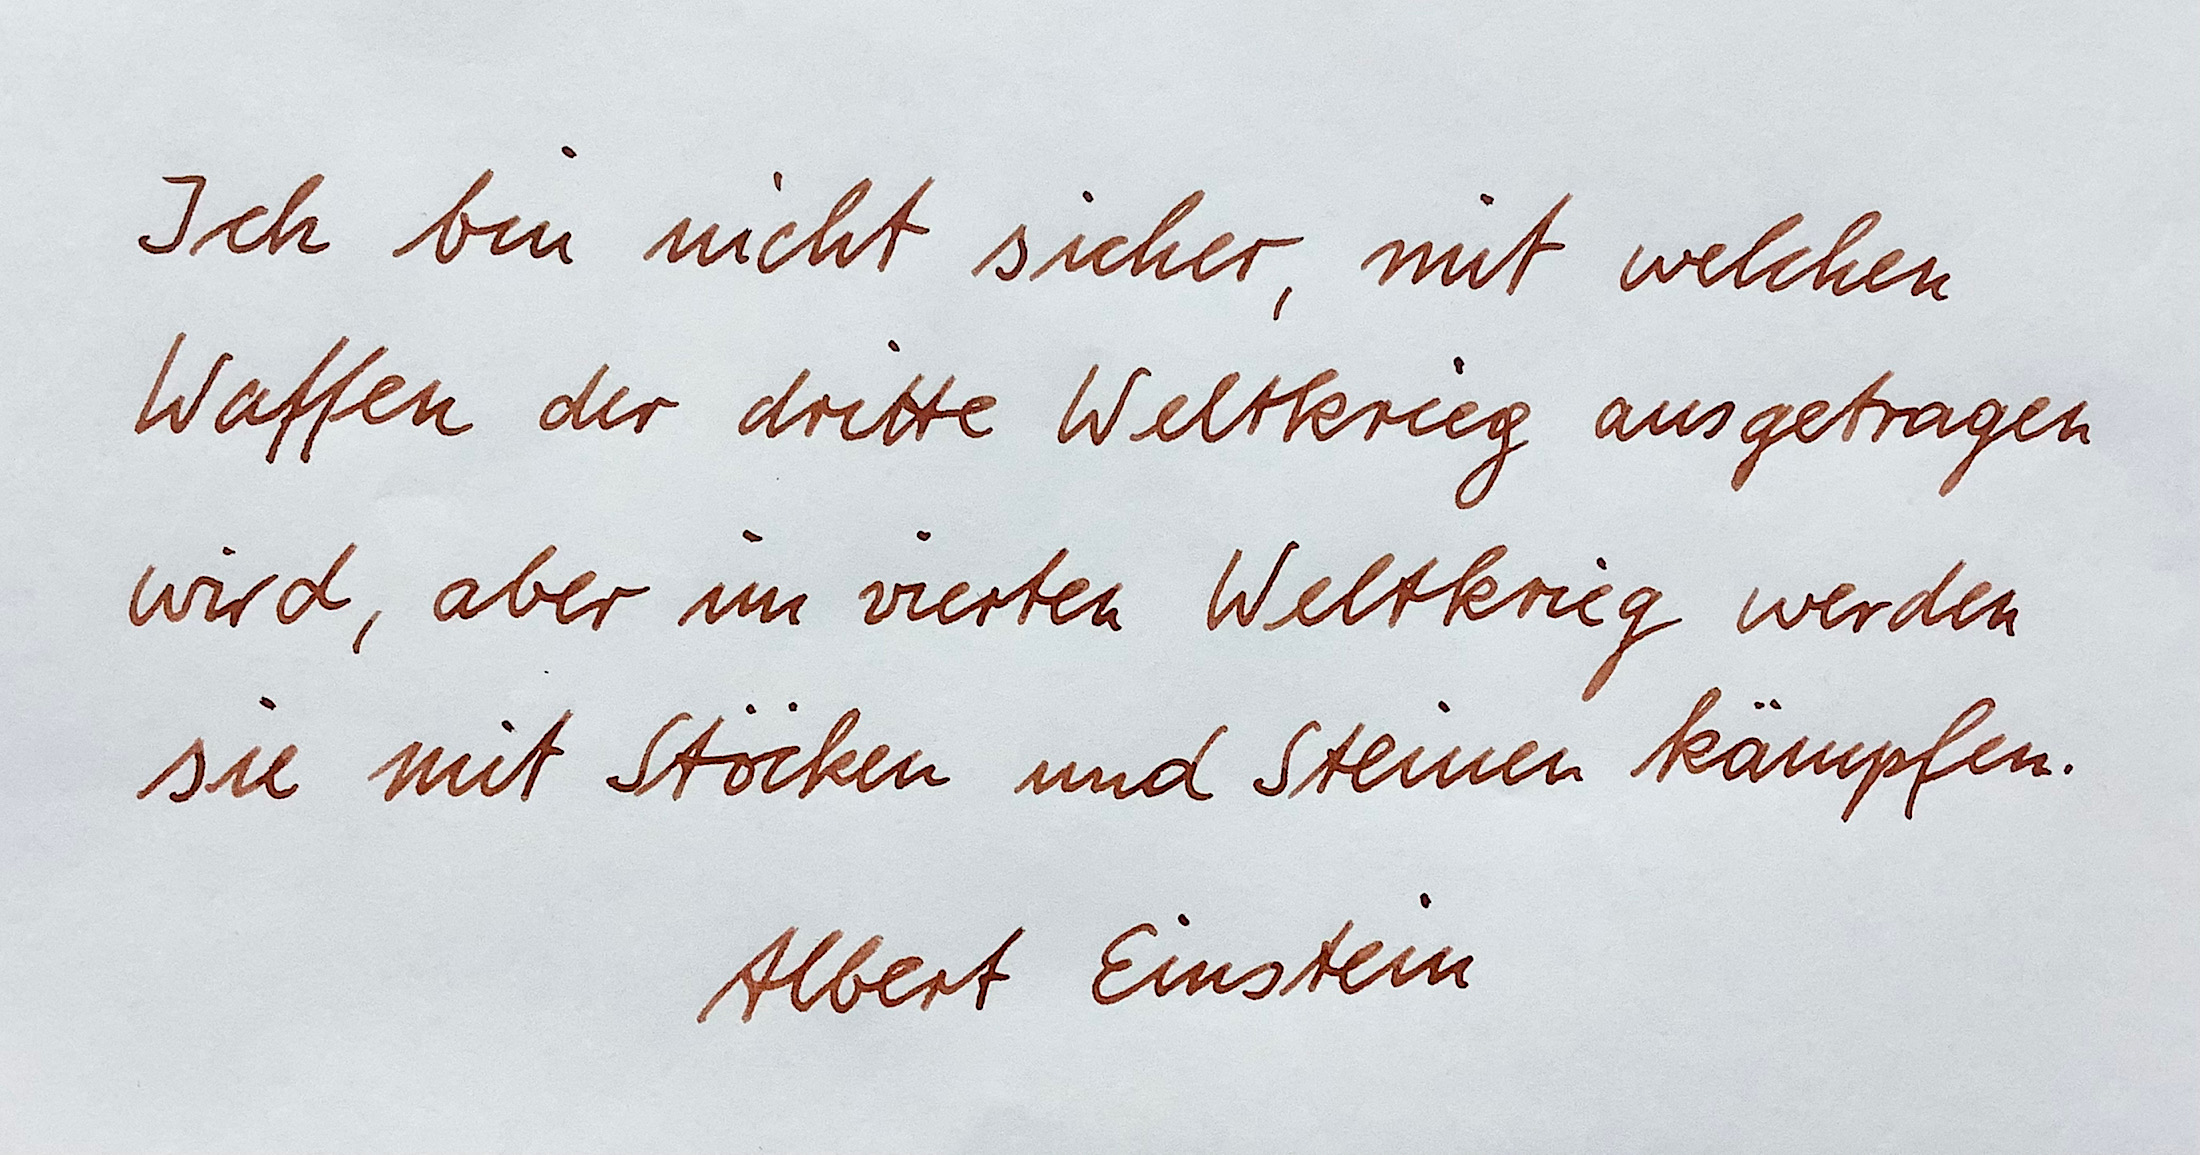 Ich bin nicht sicher, mit welchen
Waffen der dritte Weltkrieg ausgetragen
wird, aber im vierten Weltkrieg werden
sie mit Stöcken und Steinen kämpfen.
Albert Einstein